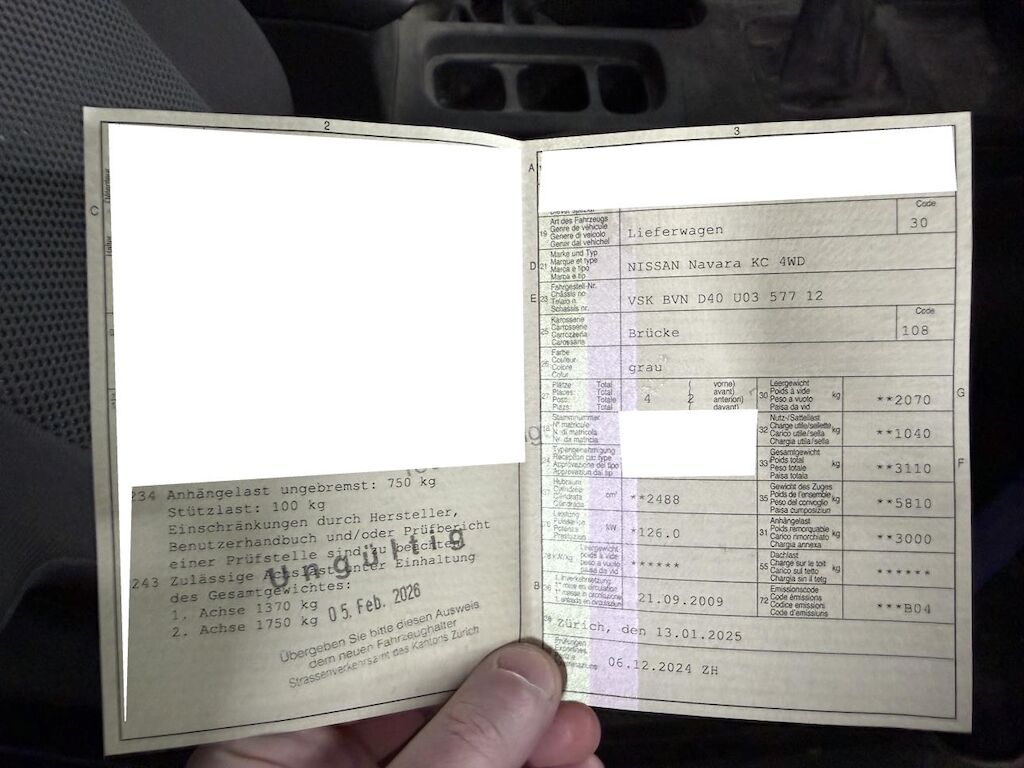 2
C
234 Anhängelast ungebremst: 750 kg
Stützlast: 100 kg
Einschränkungen durch Hersteller,
Benutzerhandbuch und/oder Prüfbericht
einer Prüfstelle sind zu beachten
243 Zulässige unter Einhaltung
des Gesamtgewichtes:
1. Achse 1370 kg
2. Achse 1750 kg
Ungültig
05. Feb. 2026
Übergeben Sie bitte diesen Ausweis
dem neuen Fahrzeughalter
Strassenverkehrsamt des Kantons Zürich
3
A
Art des Fahrzeugs
Genre de véhicule
Genere di veicolo
Gener dal vehichel
19
Lieferwagen
Code
30
D
Marke und Typ
Marque et type
Marca e tipo
Marca e tip
21
NISSAN Navara KC 4WD
E
Fahrgestell-Nr.
Châssis no
Telaio n.
Schassis nr.
23
VSK BVN D40 U03 577 12
Karosserie
Carrosserie
Carrozzeria
Carossaria
25
Brücke
Code
108
Farbe
Couleur
Colore
Colur
26
grau
Plätze Total
Places Total
Posti Totale
Plazs Total
27
4 2
( vorne)
( avant)
( anteriori)
( davant)
30
Leergewicht
Poids à vide
Peso a vuoto
Paisa da vid
kg
**2070
G
Stammnummer
N° matricule
N. di matricola
Nr. da matricla
32
Nutz-/Sattellast
Charge utile/sellette
Carico utile/sella
Chargia utila/sella
kg
**1040
Typengenehmigung
Réception par type
Approvazione del tipo
33
Gesamtgewicht
Poids total
Peso totale
Paisa totala
kg
**3110
F
Hubraum
Cylindrée
Cilindrata
cm³
**2488
35
Gewicht des Zuges
Poids de l'ensemble
Peso del convoglio
Paisa cumposiziun
kg
**5810
Leistung
Puissance
Potenza
Prestaziun
kW
*126.0
31
Anhängelast
Poids remorquable
Carico rimorchiato
Chargia annexa
kg
**3000
Leergewicht
poids à vide
peso a vuoto
paisa da vid
******
55
Dachlast
Charge sur le toit
Carico sul tetto
Chargia sin il tetg
kg
******
B
36
1. Inverkehrsetzung
21.09.2009
72
Emissionscode
Code émissions
Codice emissioni
Code d'emissiuns
***B04
Zürich, den 13.01.2025
06.12.2024 ZH